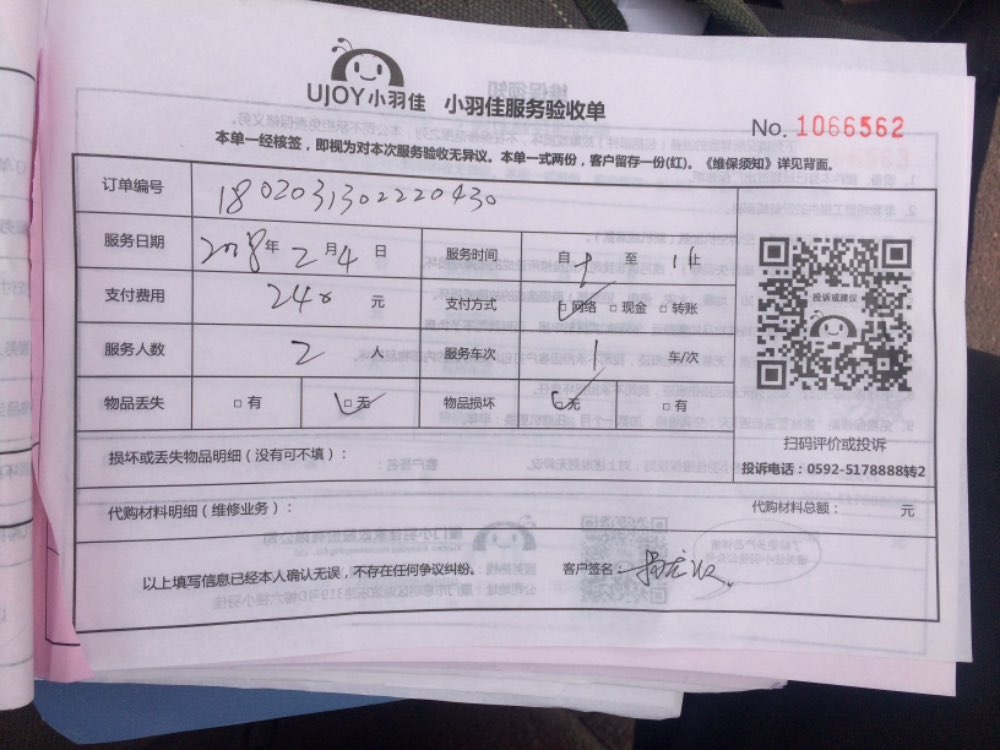 UJOY小羽佳 小羽佳服务验收单
No. 1066562
本单一经核签，即视为对本次服务验收无异议。本单一式两份，客户留存一份(红)。《维保须知》详见背面。
订单编号 1802031302220430
服务日期 2018年2月4日 服务时间 自 至 11 止
支付费用 240 元 支付方式 网络 □ 现金 □ 转账
服务人数 2 人 服务车次 1 车/次
物品丢失 □ 有 □ 无 物品损坏 □ 无 □ 有
投诉或建议
扫码评价或投诉
损坏或丢失物品明细（没有可不填）：
投诉电话：0592-5178888转2
代购材料明细（维修业务）： 代购材料总额： 元
以上填写信息已经本人确认无误，不存在任何争议纠纷。 客户签名：